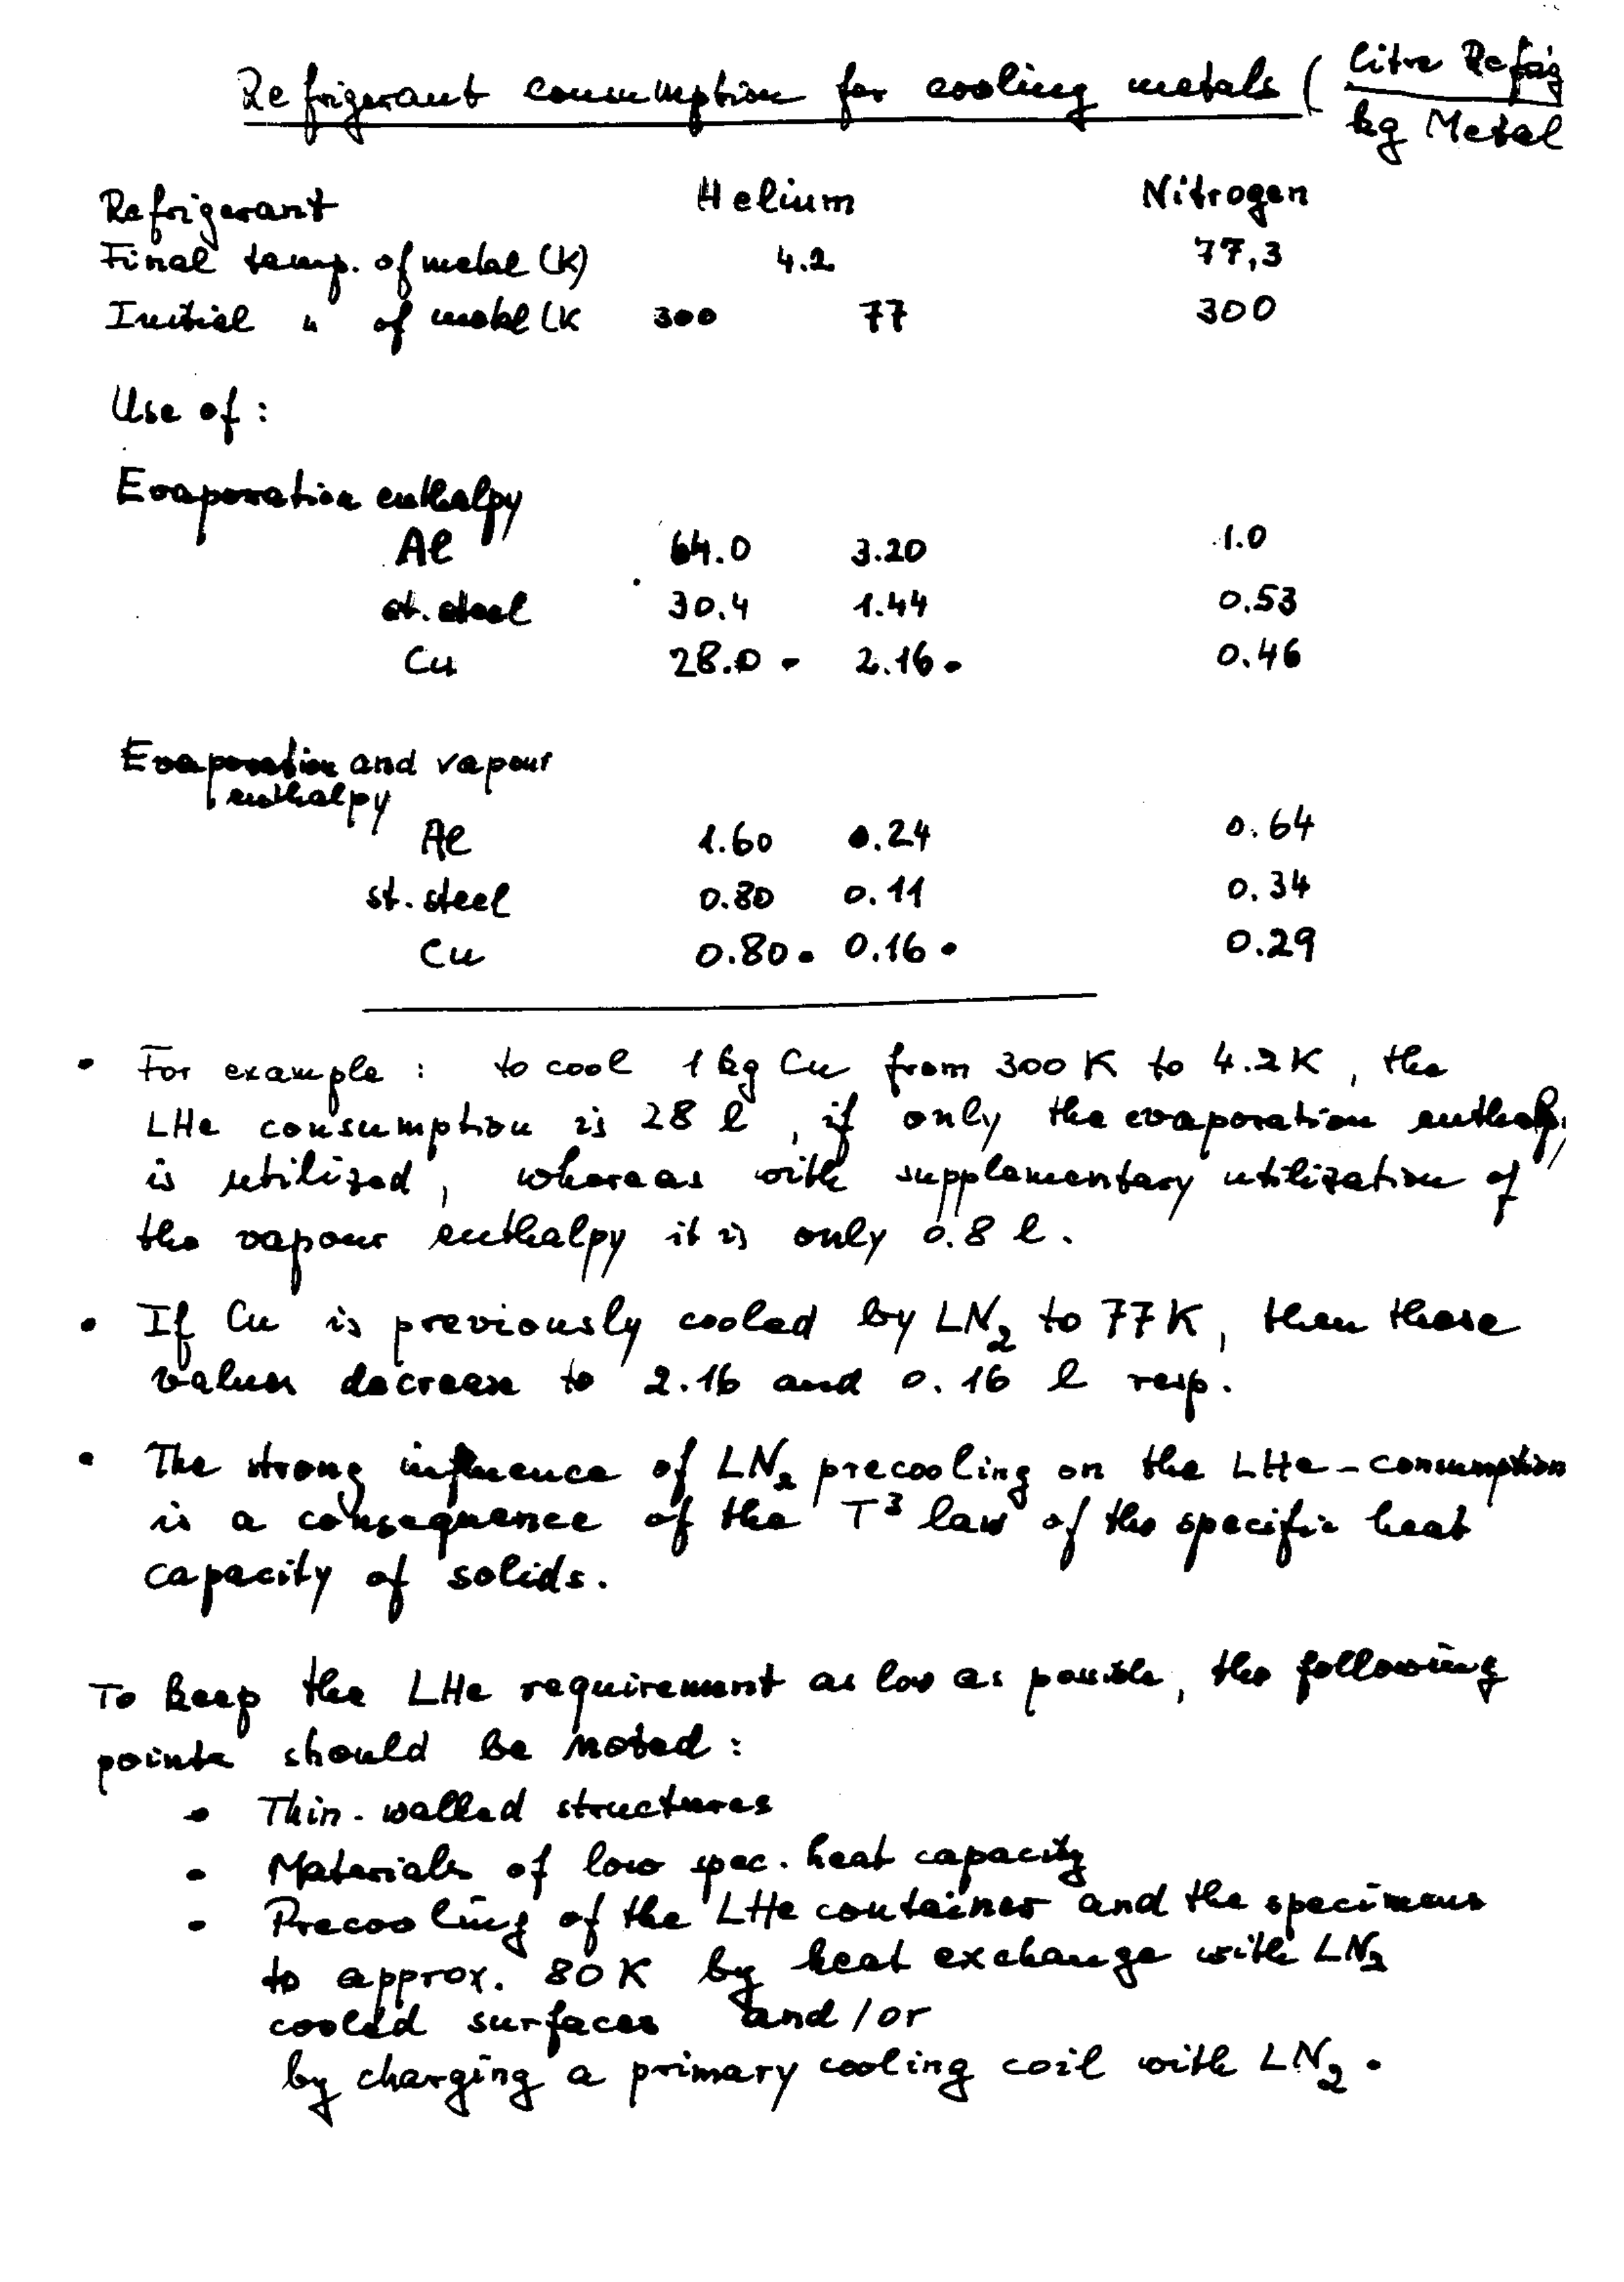 Refrigerant consumption for cooling metals ( litre Refrig / kg Metal
Refrigerant Helium Nitrogen
Final temp. of metal (K) 4.2 77,3
Initial " of metal (K 300 77 300
Use of :
Evaporation enthalpy
Al 64.0 3.20 1.0
st. steel 30.4 1.44 0.53
Cu 28.0 - 2.16 • 0.46
Evaporation and vapour
enthalpy
Al 1.60 0.24 0.64
st. steel 0.80 0.11 0.34
Cu 0.80 • 0.16 • 0.29
• For example : to cool 1 kg Cu from 300 K to 4.2 K , the
LHe consumption is 28 l , if only the evaporation enthalpy
is utilized , whereas with supplementary utilization of
the vapour enthalpy it is only 0.8 l .
• If Cu is previously cooled by LN₂ to 77 K , then these
values decrease to 2.16 and 0.16 l resp.
• The strong influence of LN₂ precooling on the LHe-consumption
is a consequence of the T³ law of the specific heat
capacity of solids.
To keep the LHe requirement as low as possible, the following
points should be noted :
• Thin-walled structures
• Materials of low spec. heat capacity
• Precooling of the LHe container and the specimens
to approx. 80 K by heat exchange with LN₂
cooled surfaces and/or
by charging a primary cooling coil with LN₂ .